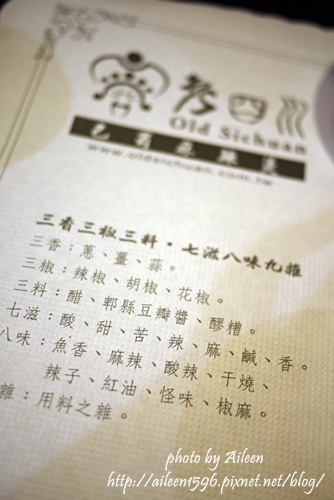 老四川
Old Sichuan
巴蜀麻辣燙
www.oldsichuan.com.tw
三香三椒三料・七滋八味九雜
三香：蔥、薑、蒜。
三椒：辣椒、胡椒、花椒。
三料：醋、郫縣豆瓣醬、醪糟。
七滋：酸、甜、苦、辣、麻、鹹、香。
八味：魚香、麻辣、酸辣、干燒、
辣子、紅油、怪味、椒麻。
雜：用料之雜。
photo by Aileen
http://aileen1596.pixnet.net/blog/